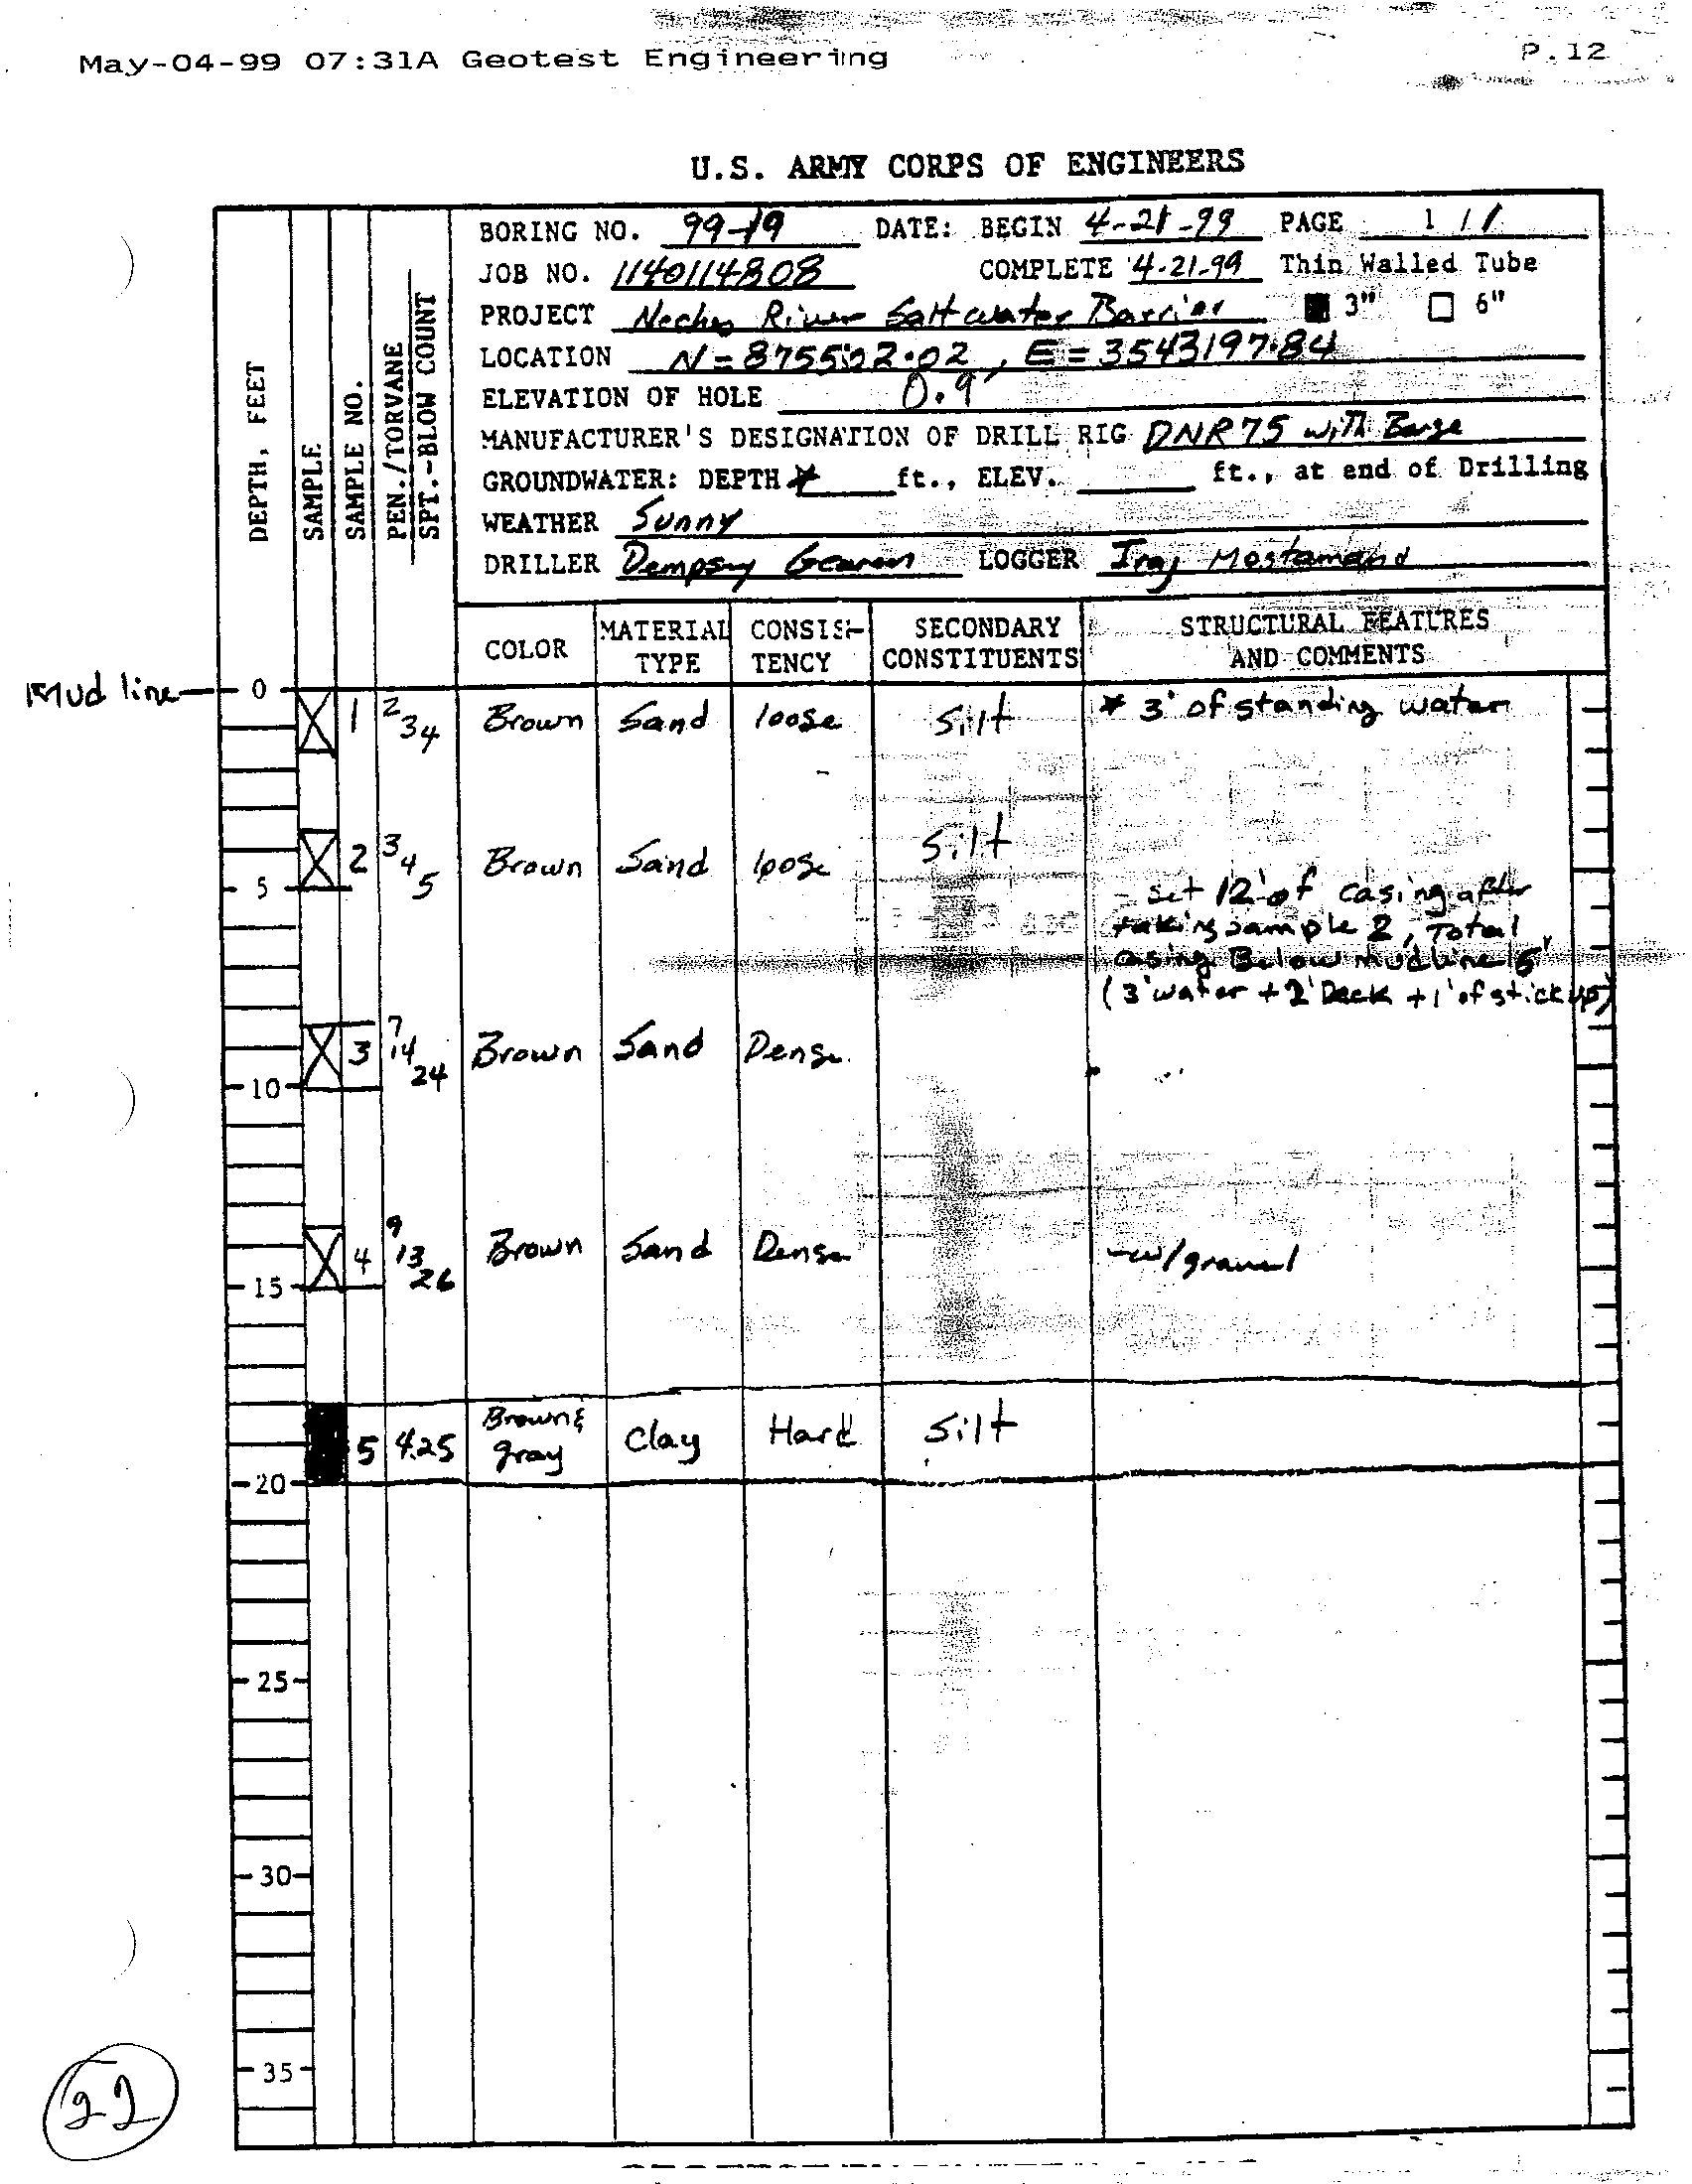 May-04-99 07:31A Geotest Engineering P.12
U.S. ARMY CORPS OF ENGINEERS
BORING NO. 99-19 DATE: BEGIN 4-21-99 PAGE 1 / 1
JOB NO. 1140114808 COMPLETE 4-21-99 Thin Walled Tube
PROJECT Neches River Saltwater Barrier 3" 6"
LOCATION N = 875502.02, E = 3543197.84
ELEVATION OF HOLE 0.9'
MANUFACTURER'S DESIGNATION OF DRILL RIG DNR 75 with Barge
GROUNDWATER: DEPTH * ft., ELEV. ft., at end of Drilling
WEATHER Sunny
DRILLER Dempsey LOGGER Iraj Mostamand
DEPTH, FEET
SAMPLE
SAMPLE NO.
PEN./TORVANE
SPT.-BLOW COUNT
COLOR MATERIAL TYPE CONSIS- TENCY SECONDARY CONSTITUENTS STRUCTURAL FEATURES AND COMMENTS
Mud line 0
1 2 3 4 Brown Sand loose Silt * 3' of standing water
2 3 4 5 Brown Sand loose Silt
5
- set 12' of casing after
taking sample 2, Total
casing Below mudline 6'
(3' water + 2' Deck + 1' of stick up)
3 7 14 24 Brown Sand Dense
10
4 9 13 26 Brown Sand Dense - w/gravel
15
5 4.25 Brown & gray Clay Hard Silt
20
25
30
35
22